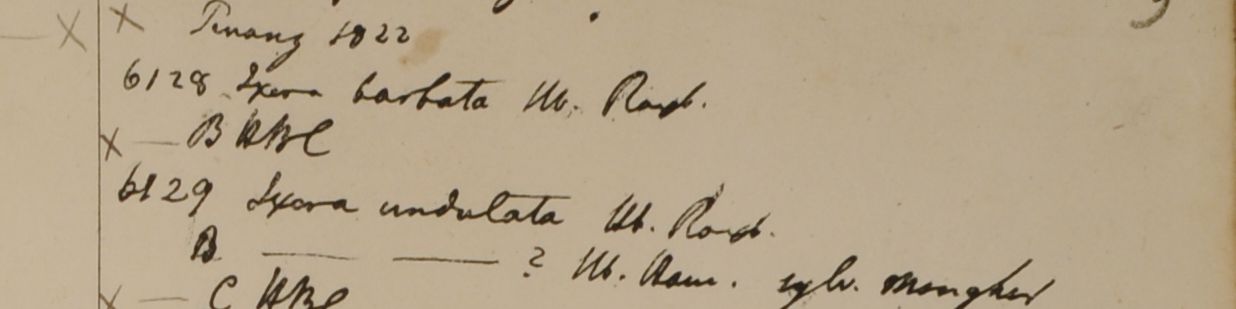 × × Penang 1822
6128 Ixora barbata Hb. Roxb.
× — B HBC
6129 Ixora undulata Hb. Roxb.
B — — ? Hb. Ham. sylv. Mongher
× — C HBC